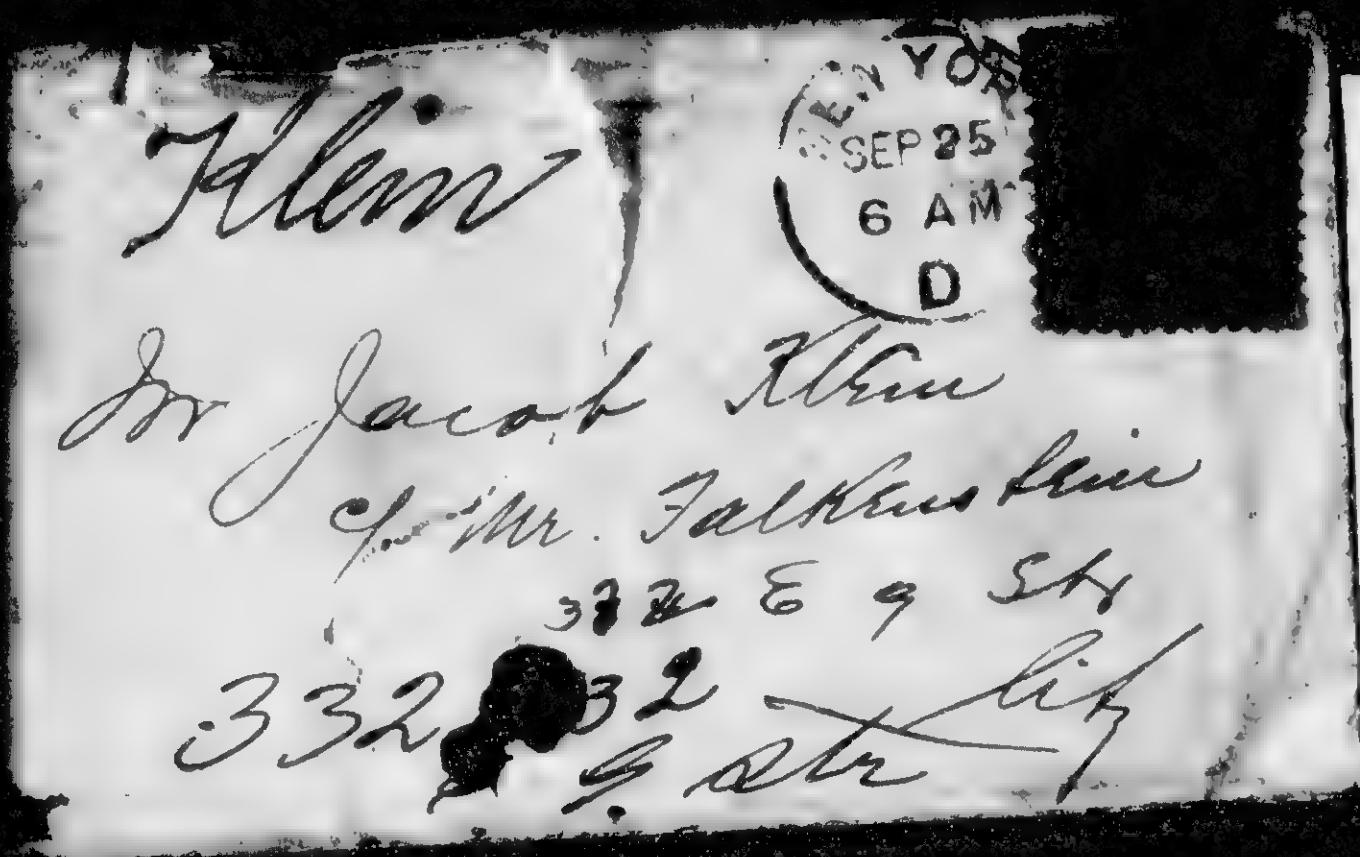 Klein
NEW YORK
SEP 25
6 AM
D
Mr Jacob Klein
c/o Mr. Falkenstein
E 9 Str
City
332 32
9 Str